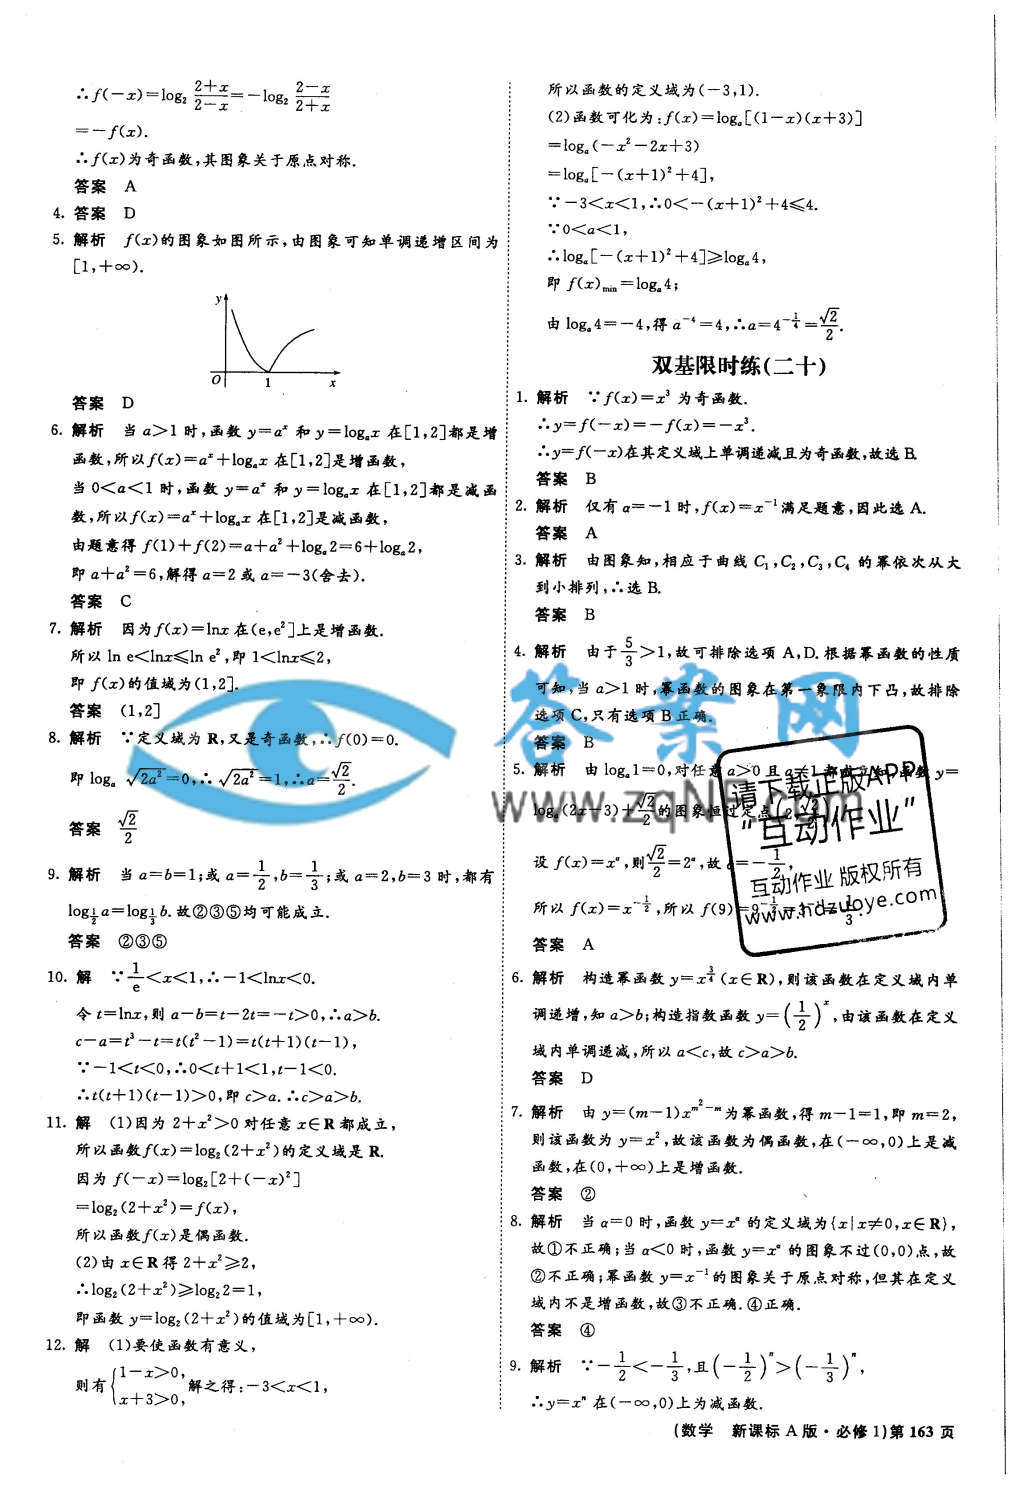 ∴f(-x)=log₂ (2+x)/(2-x)=-log₂ (2-x)/(2+x)
=-f(x).
∴f(x)为奇函数,其图象关于原点对称.
答案 A
4. 答案 D
5. 解析 f(x)的图象如图所示,由图象可知单调递增区间为
[1,+∞).
y
O 1 x
答案 D
6. 解析 当a>1时,函数y=aˣ和y=logₐx在[1,2]都是增
函数,所以f(x)=aˣ+logₐx在[1,2]是增函数,
当0<a<1时,函数y=aˣ和y=logₐx在[1,2]都是减函
数,所以f(x)=aˣ+logₐx在[1,2]是减函数,
由题意得f(1)+f(2)=a+a²+logₐ2=6+logₐ2,
即a+a²=6,解得a=2或a=-3(舍去).
答案 C
7. 解析 因为f(x)=lnx在(e,e²]上是增函数.
所以ln e<lnx≤ln e²,即1<lnx≤2,
即f(x)的值域为(1,2].
答案 (1,2]
8. 解析 ∵定义域为R,又是奇函数,∴f(0)=0.
即logₐ √(2a²)=0,∴√(2a²)=1,∴a=√2/2.
答案 √2/2
9. 解析 当a=b=1;或a=1/2,b=1/3;或a=2,b=3时,都有
log_{1/2}a=log_{1/3}b.故②③⑤均可能成立.
答案 ②③⑤
10. 解 ∵1/e<x<1,∴-1<lnx<0.
令t=lnx,则a-b=t-2t=-t>0,∴a>b.
c-a=t³-t=t(t²-1)=t(t+1)(t-1),
∵-1<t<0,∴0<t+1<1,t-1<0.
∴t(t+1)(t-1)>0,即c>a.∴c>a>b.
11. 解 (1)因为2+x²>0对任意x∈R都成立,
所以函数f(x)=log₂(2+x²)的定义域是R.
因为f(-x)=log₂[2+(-x)²]
=log₂(2+x²)=f(x),
所以函数f(x)是偶函数.
(2)由x∈R得2+x²≥2,
∴log₂(2+x²)≥log₂2=1,
即函数y=log₂(2+x²)的值域为[1,+∞).
12. 解 (1)要使函数有意义,
则有{1-x>0, x+3>0, 解之得:-3<x<1,
所以函数的定义域为(-3,1).
(2)函数可化为:f(x)=logₐ[(1-x)(x+3)]
=logₐ(-x²-2x+3)
=logₐ[-(x+1)²+4],
∵-3<x<1,∴0<-(x+1)²+4≤4.
∵0<a<1,
∴logₐ[-(x+1)²+4]≥logₐ4,
即f(x)min=logₐ4;
由logₐ4=-4,得a⁻⁴=4,∴a=4^{-1/4}=√2/2.
双基限时练(二十)
1. 解析 ∵f(x)=x³为奇函数.
∴y=f(-x)=-f(x)=-x³.
∴y=f(-x)在其定义域上单调递减且为奇函数,故选B.
答案 B
2. 解析 仅有α=-1时,f(x)=x⁻¹满足题意,因此选A.
答案 A
3. 解析 由图象知,相应于曲线C₁,C₂,C₃,C₄的幂依次从大
到小排列,∴选B.
答案 B
4. 解析 由于5/3>1,故可排除选项A,D.根据幂函数的性质
可知,当a>1时,幂函数的图象在第一象限内下凸,故排除
选项C,只有选项B正确.
答案 B
5. 解析 由logₐ1=0,对任意a>0且a≠1都成立知,函数y=
logₐ(2x-3)+√2/2的图象恒过定点(2,√2/2
设f(x)=xᵅ,则√2/2=2ᵅ,故α=-1/2,
所以f(x)=x^{-1/2},所以f(9)=9^{-1/2}=3⁻¹=1/3.
答案 A
6. 解析 构造幂函数y=x^{3/4}(x∈R),则该函数在定义域内单
调递增,知a>b;构造指数函数y=(1/2)ˣ,由该函数在定义
域内单调递减,所以a<c,故c>a>b.
答案 D
7. 解析 由y=(m-1)x^{m²-m}为幂函数,得m-1=1,即m=2,
则该函数为y=x²,故该函数为偶函数,在(-∞,0)上是减
函数,在(0,+∞)上是增函数.
答案 ②
8. 解析 当α=0时,函数y=xᵅ的定义域为{x|x≠0,x∈R},
故①不正确;当α<0时,函数y=xᵅ的图象不过(0,0)点,故
②不正确;幂函数y=x⁻¹的图象关于原点对称,但其在定义
域内不是增函数,故③不正确.④正确.
答案 ④
9. 解析 ∵-1/2<-1/3,且(-1/2)ⁿ>(-1/3)ⁿ,
∴y=xⁿ在(-∞,0)上为减函数.
(数学 新课标A版·必修1)第163页
答案网
www.zqNF.com
请下载正版APP
“互动作业”
互动作业 版权所有
www.hdzuoye.com